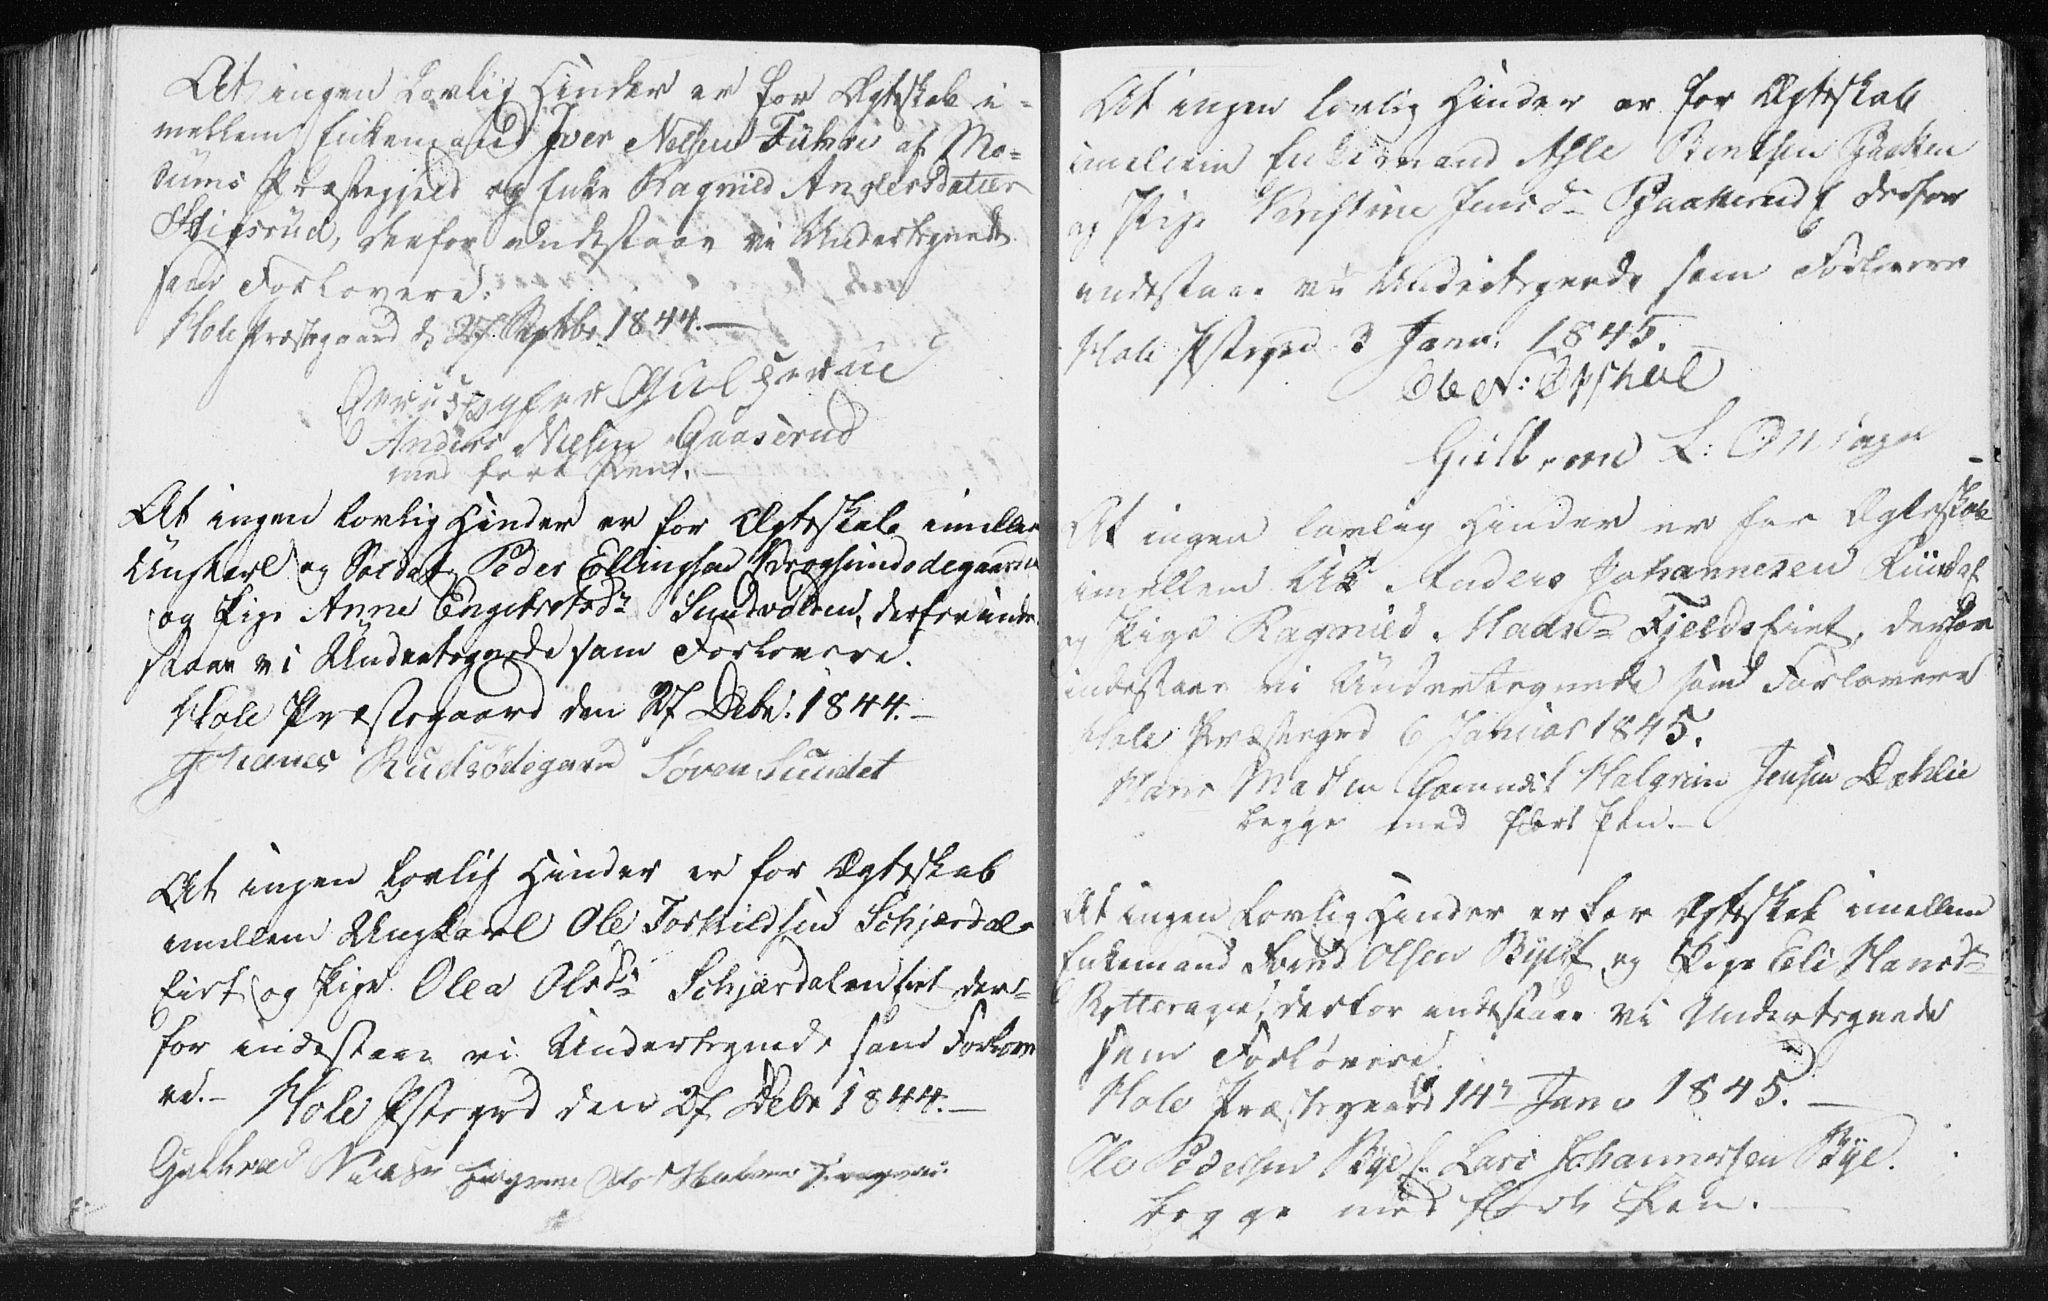 At ingen Lovlig Hinder er for Ægteskab i-
mellem Enkemand Iver Nelsen Führi af Mo-
dums Præstegjeld og Enke Ragnild Anglersdatter
derfor indestaae vi Undertegnede
som Forlovere.
Hole Præstegaard d. 27 Septbr 1844.
Anders Nielsen Gaaserud
med ført Pen.
At ingen lovlig Hinder er for Ægteskab imellem
Ungkarl og Soldat Peder Ellingsen Krogsundødegaarden
og Pige Anne Engebretsdr Sundvolden, derfor inde-
staaer vi Undertegnede som Forlovere.
Hole Præstegaard den 27 Debr. 1844.
Johanes Rudsødegaard Søren Sundet
At ingen Lovlig Hinder er for Ægteskab
imellem Ungkarl Ole Torkildsen Schjærdals-
eiet og Pige Olea Olsdr Schjærdaleneiet der-
for indestaae vi Undertegnede som Forlove-
re. Hole Pstegrd den 27 Debr 1844.
At ingen lovlig Hinder er for Ægteskab
imellem Enkemand Asle Bentsen
og Pige Kristine Jensdr derfor
indestaae vi Undertegnede som Forlovere
Hole Pstegrd 3 Janr. 1845.
Ole N: Opshal
L:
At ingen lovlig Hinder er for Ægteskab
imellem Uk Anders Johannesen
og Pige Ragnild Madsdr Fjeldseiet, derfor
indestaae vi Undertegnede som Forlovere
Hole Præstegrd 6 Januar 1845.
Hans Madsen Halgrim Jensen Dæhlie
begge med ført Pen.
At ingen Lovlig Hinder er for Ægteskab imellem
Enkemand Olsen og Pige Eli Hansdr
derfor indestaae vi Undertegnede
som Forlovere.
Hole Præstegaard 14 Janr 1845.
Ole Pedersen Bye Lars Johannessen Bye.
begge med ført Pen.